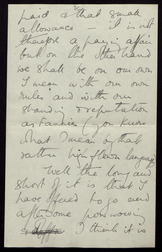 paid & that small
allowance — it is not
therefore a paying affair
but on the other hand
we shall be on our own
I mean with our own
rules and with our
standing & reputation
as Pandies (you know
what I mean by that
rather high flown language)
Well the long and
short of it is that I
have offered to go and
after some
I think it is